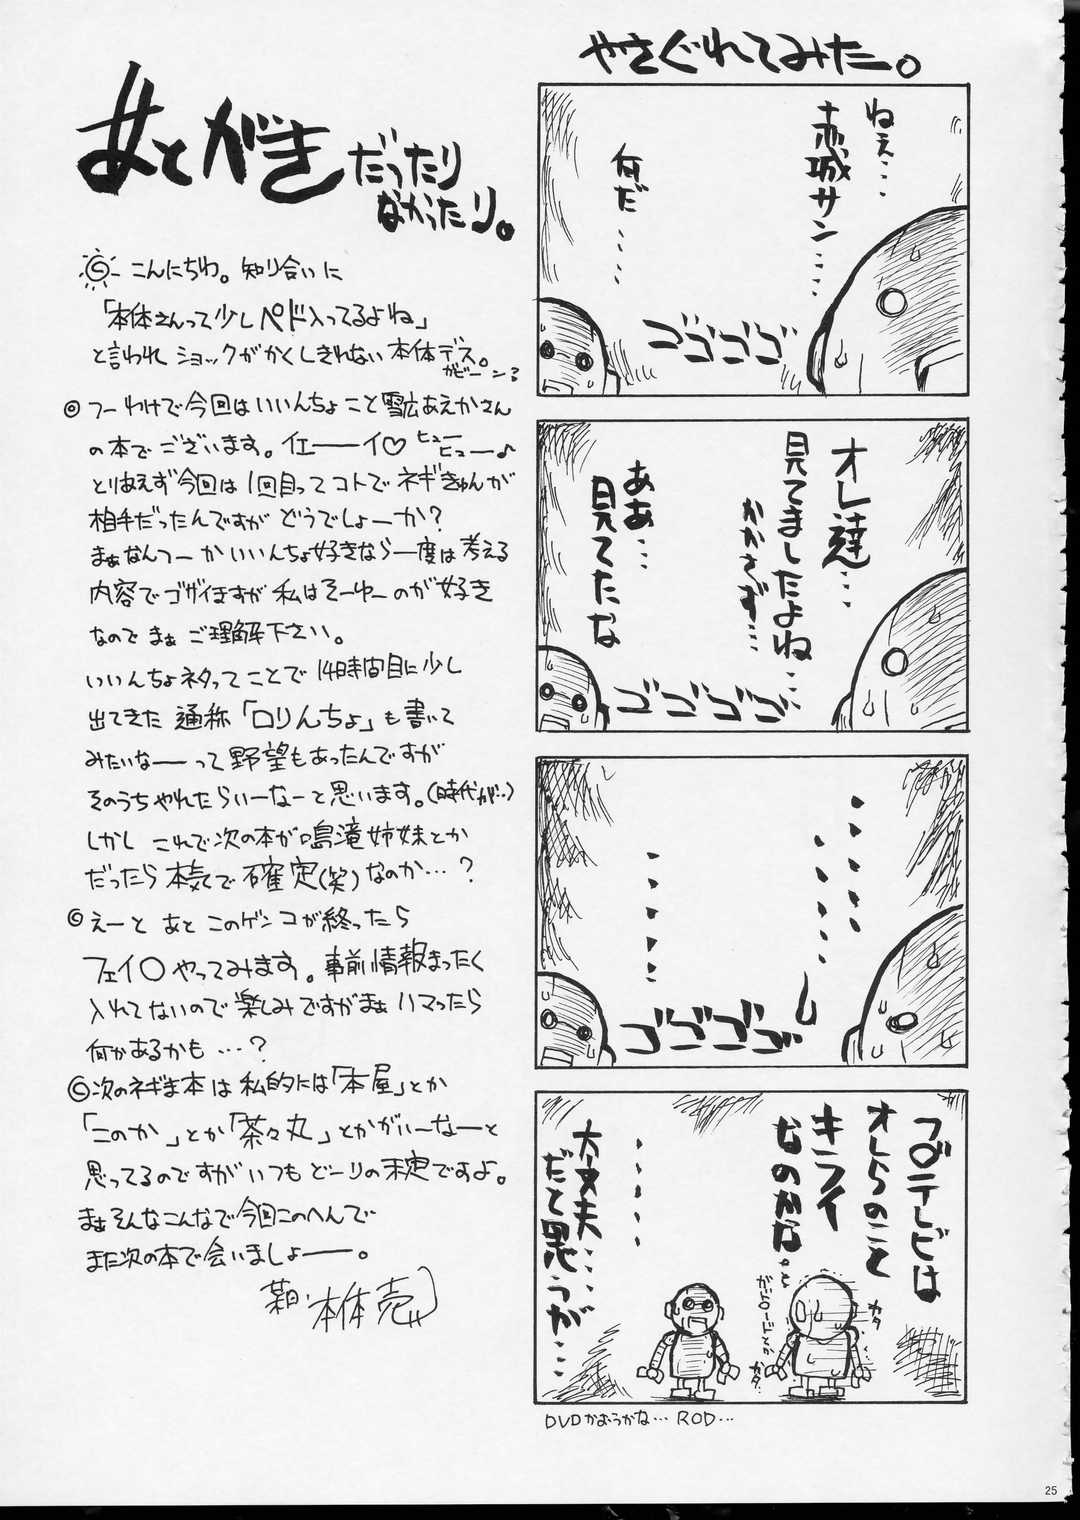 やさぐれてみた。
ねぇ・・・
赤城サン・・・・
何だ・・・・
ゴゴゴゴゴ
オレ達・・・
見てましたよね
かかさず・・・
ああ・・・
見てたな
ゴゴゴゴゴ
ゴゴゴゴゴ
フ〇テレビは
オレらのこと
キライ
なのかな・・
カタ
カタ
・・・・・
大丈夫・・・
だと思うが・・・
DVDかおうかな… ROD…
あとがき
だったり
なかったり。
こんにちわ。知り合いに
「本体さんって少しペド入ってるよね」
と言われショックがかくしきれない本体デス。
ガビーン
つーわけで今回はいいんちょこと雪広あえかさん
の本でございます。イエーーイ♡ ヒューヒュー♪
とりあえず今回は1回目ってコトでネギきゅんが
相手だったんですがどうでしょーか?
まぁなんつーかいいんちょ好きなら一度は考える
内容でゴザイますが私はそーゆーのが好き
なのでまぁご理解下さい。
いいんちょネタってことで14時間目に少し
出てきた通称「ロりんちょ」も書いて
みたいなーーって野望もあったんですが
そのうちやれたらいーなーと思います。(時代が‥)
しかしこれで次の本が鳴滝姉妹とか
だったら本気で確定(笑)なのか…?
えーとあとこのゲンコが終ったら
フェイ〇やってみます。事前情報まったく
入れてないので楽しみですがまぁハマったら
何かあるかも…?
次のネギま本は私的には「本屋」とか
「このか」とか「茶々丸」とかがいーなーと
思ってるのですがいつもどーりの未定ですよ。
まぁそんなこんなで今回このへんで
また次の本で会いましょーー。
本体売
25